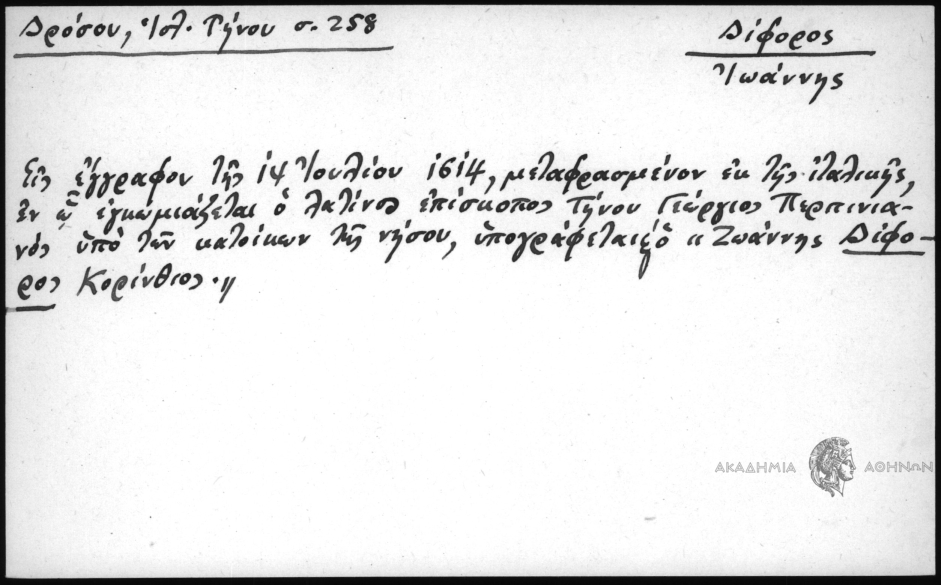 Δρόσου, Ἱστ. Τήνου σ. 258
Δίφορος
Ἰωάννης
Εἰς ἔγγραφον τῆς 14 Ἰουλίου 1614, μεταφρασμένον ἐκ τῆς ἰταλικῆς,
ἐν ᾧ ἐγκωμιάζεται ὁ λατῖνος ἐπίσκοπος Τήνου Γεώργιος Περπινια-
νός ὑπό τῶν κατοίκων τῆς νήσου, ὑπογράφεται ὁ "Ζωάννης Δίφο-
ρος Κορίνθιος."
ΑΚΑΔΗΜΙΑ ΑΘΗΝΩΝ